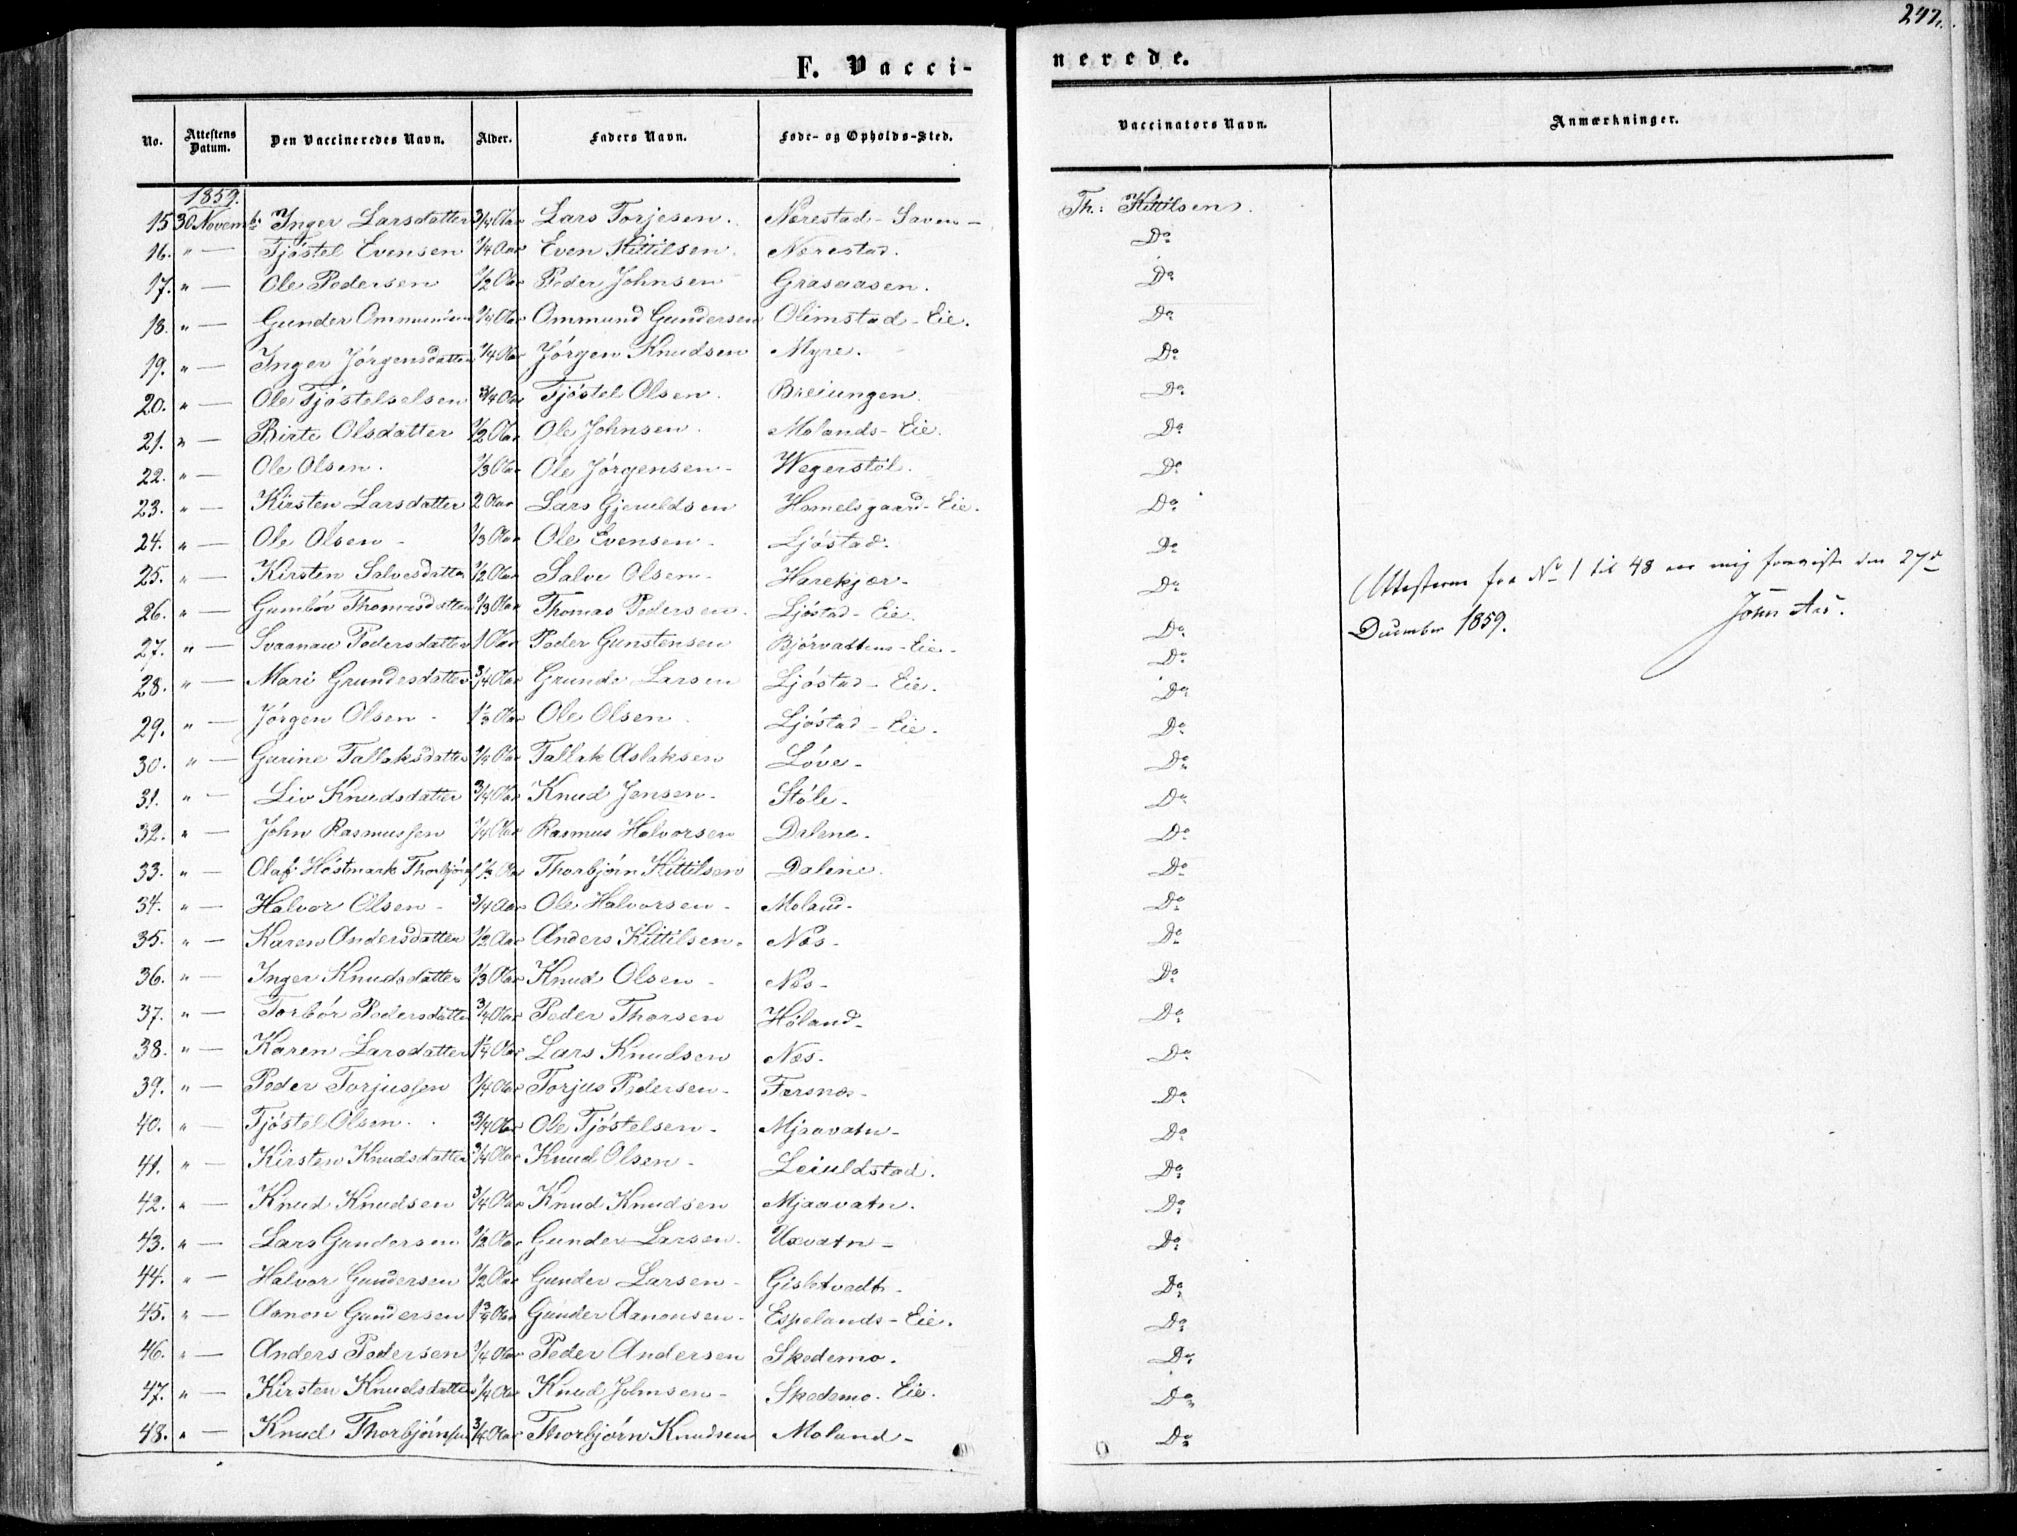 247.
F. Vacci-
nerede.
No. Attestens Datum. Den Vaccineredes Navn. Alder. Faders Navn. Føde- og Opholds-Sted. Vaccinators Navn. Anmærkninger.
1859.
15 30 Novembr Inger Larsdatter 3/4 Aar Lars Torjesen. Nærestad-Saven- Th: Kittilsen.
16. " — Tjöstel Evensen 1/4 Aar Even Kittilsen. Nærestad. Do
17. " — Ole Pedersen 1/2 Aar Peder Johnsen Grasaasen. Do
18. " — Gunder Ommundsen 1/4 Aar Ommund Gundersen Olimstad-Eie. Do
19. " — Inger Jörgensdatter 1/4 Aar Jörgen Knudsen Myre. Do
20. " — Ole Tjöstelselsen 3/4 Aar Tjöstel Olsen. Breiungen. Do
21. " — Birte Olsdatter 1/2 Aar Ole Johnsen. Molands-Eie. Do
22. " — Ole Olsen. 1/3 Aar Ole Jörgensen- Wegerstöl. Do
23. " — Kirsten Larsdatter 2 Aar Lars Gjeruldsen Homelsgaard-Eie. Do
24. " — Ole Olsen - 1/3 Aar Ole Evensen- Ljöstad. Do
25. " — Kirsten Salvesdatter 1/2 Aar Salve Olsen- Harekjær- Do
26. " — Gumbör Thomasdatter 1/3 Aar Thomas Pedersen. Ljöstad-Eie. Do
27. " — Svaanau Pedersdatter 1 Aar Peder Gunstensen Bjórvattens-Eie- Do
28. " — Mari Grundesdatter 3/4 Aar Grunde Larsen Ljöstad-Eie. Do
29. " — Jörgen Olsen - 1 1/2 Aar Ole Olsen. Ljöstad-Eie. Do
30. " — Gurine Tallaksdatter 1/4 Aar Tallak Aslaksen Löve- Do
31. " — Liv Knudsdatter 3/4 Aar Knud Jensen- Stöle- Do
32. " — John Rasmussen 1/4 Aar Rasmus Halvorsen Dalene- Do
33. " — Olaf Höstmark Thorbjörns Thorbjörn Kittilsen Dalene. Do
34. " — Halvor Olsen - 3/4 Aar Ole Halvorsen - Moland- Do
35. " — Karen Andersdatter 1/2 Aar Anders Kittilsen. Næs- Do
36. " — Inger Knudsdatter 1/3 Aar Knud Olsen - Næs- Do
37. " — Torbör Pedersdatter 3/4 Aar Peder Thorsen Höland- Do
38. " — Karen Larsdatter 1 1/4 Aar Lars Knudsen Næs. Do
39. " — Peder Torjussen 1/4 Aar Torjus Pedersen- Fersnæs- Do
40. " — Tjöstel Olsen. 3/4 Aar Ole Tjöstelsen- Mjaavatn- Do
41. " — Kirsten Knudsdatter 3/4 Aar Knud Olsen- Leiuldstad. Do
42. " — Knud Knudsen 3/4 Aar Knud Knudsen Mjaavatn. Do
43. " — Lars Gundersen 1/2 Aar Gunder Larsen. Uxvatn- Do
44. " — Halvor Gundersen 1/2 Aar Gunder Larsen- Gisletvedt- Do
45. " — Aanon Gundersen 1 3/4 Aar Gunder Aanonsen- Espelands-Eie. Do
46. " — Anders Pedersen 1/4 Aar Peder Andersen Skedemo. Do
47. " — Kirsten Knudsdatter 1/4 Aar Knud Johnsen- Skedemo. Eie. Do
48. " — Knud Thorbjörnsen 3/4 Aar Thorbjörn Knudsen Moland- Do
Attesterne fra No 1 til 48 ere mig foreviste den 27de
December 1859.